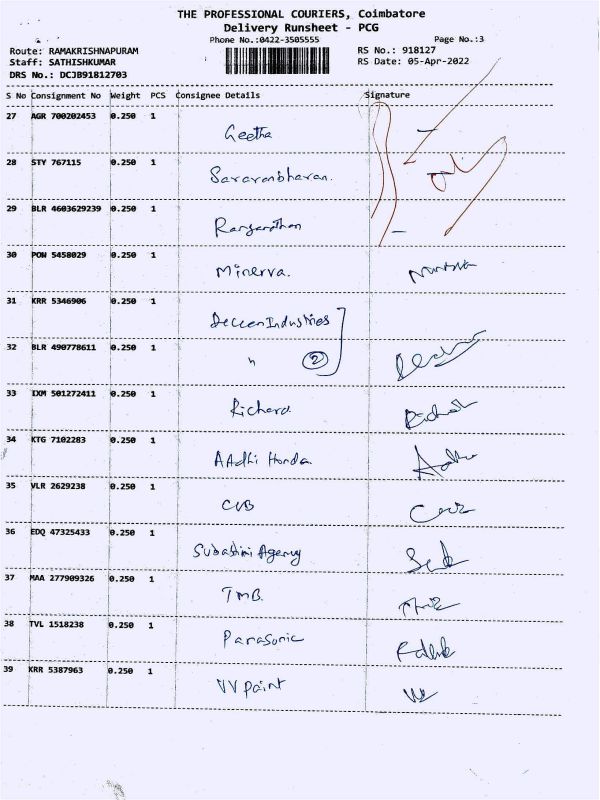 THE PROFESSIONAL COURIERS, Coimbatore
Delivery Runsheet - PCG
Phone No.:0422-3505555 Page No.:3
Route: RAMAKRISHNAPURAM RS No.: 918127
Staff: SATHISHKUMAR RS Date: 05-Apr-2022
DRS No.: DCJB91812703
S No Consignment No Weight PCS Consignee Details Signature
27 AGR 700202453 0.250 1
Geetha
28 STY 767115 0.250 1
Saravanbhavan.
29 BLR 4603629239 0.250 1
Ranganathan
30 PON 5458029 0.250 1
Minerva.
31 KRR 5346906 0.250 1
Deccan Industries
32 BLR 490778611 0.250 1
" 2
33 IXM 501272411 0.250 1
Richard
34 KTG 7102283 0.250 1
AAdhi Honda
35 VLR 2629238 0.250 1
CUB
36 EDQ 47325433 0.250 1
Subashini Agency
37 MAA 277909326 0.250 1
TMB.
38 TVL 1518238 0.250 1
Panasonic
39 KRR 5387963 0.250 1
VV paint